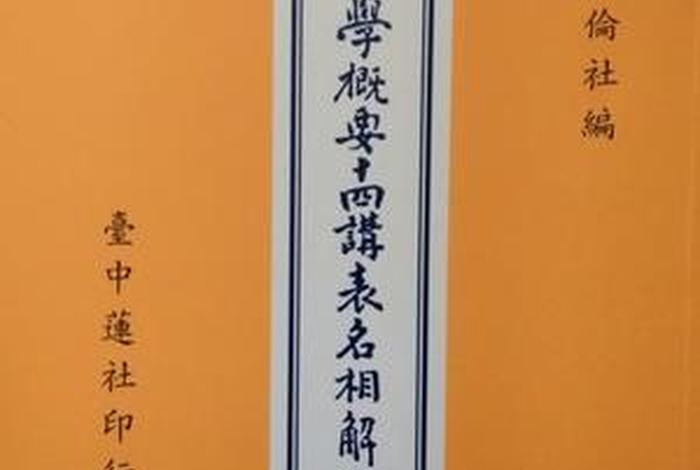 倫社編
學概要十四講表名相解
臺中蓮社印行